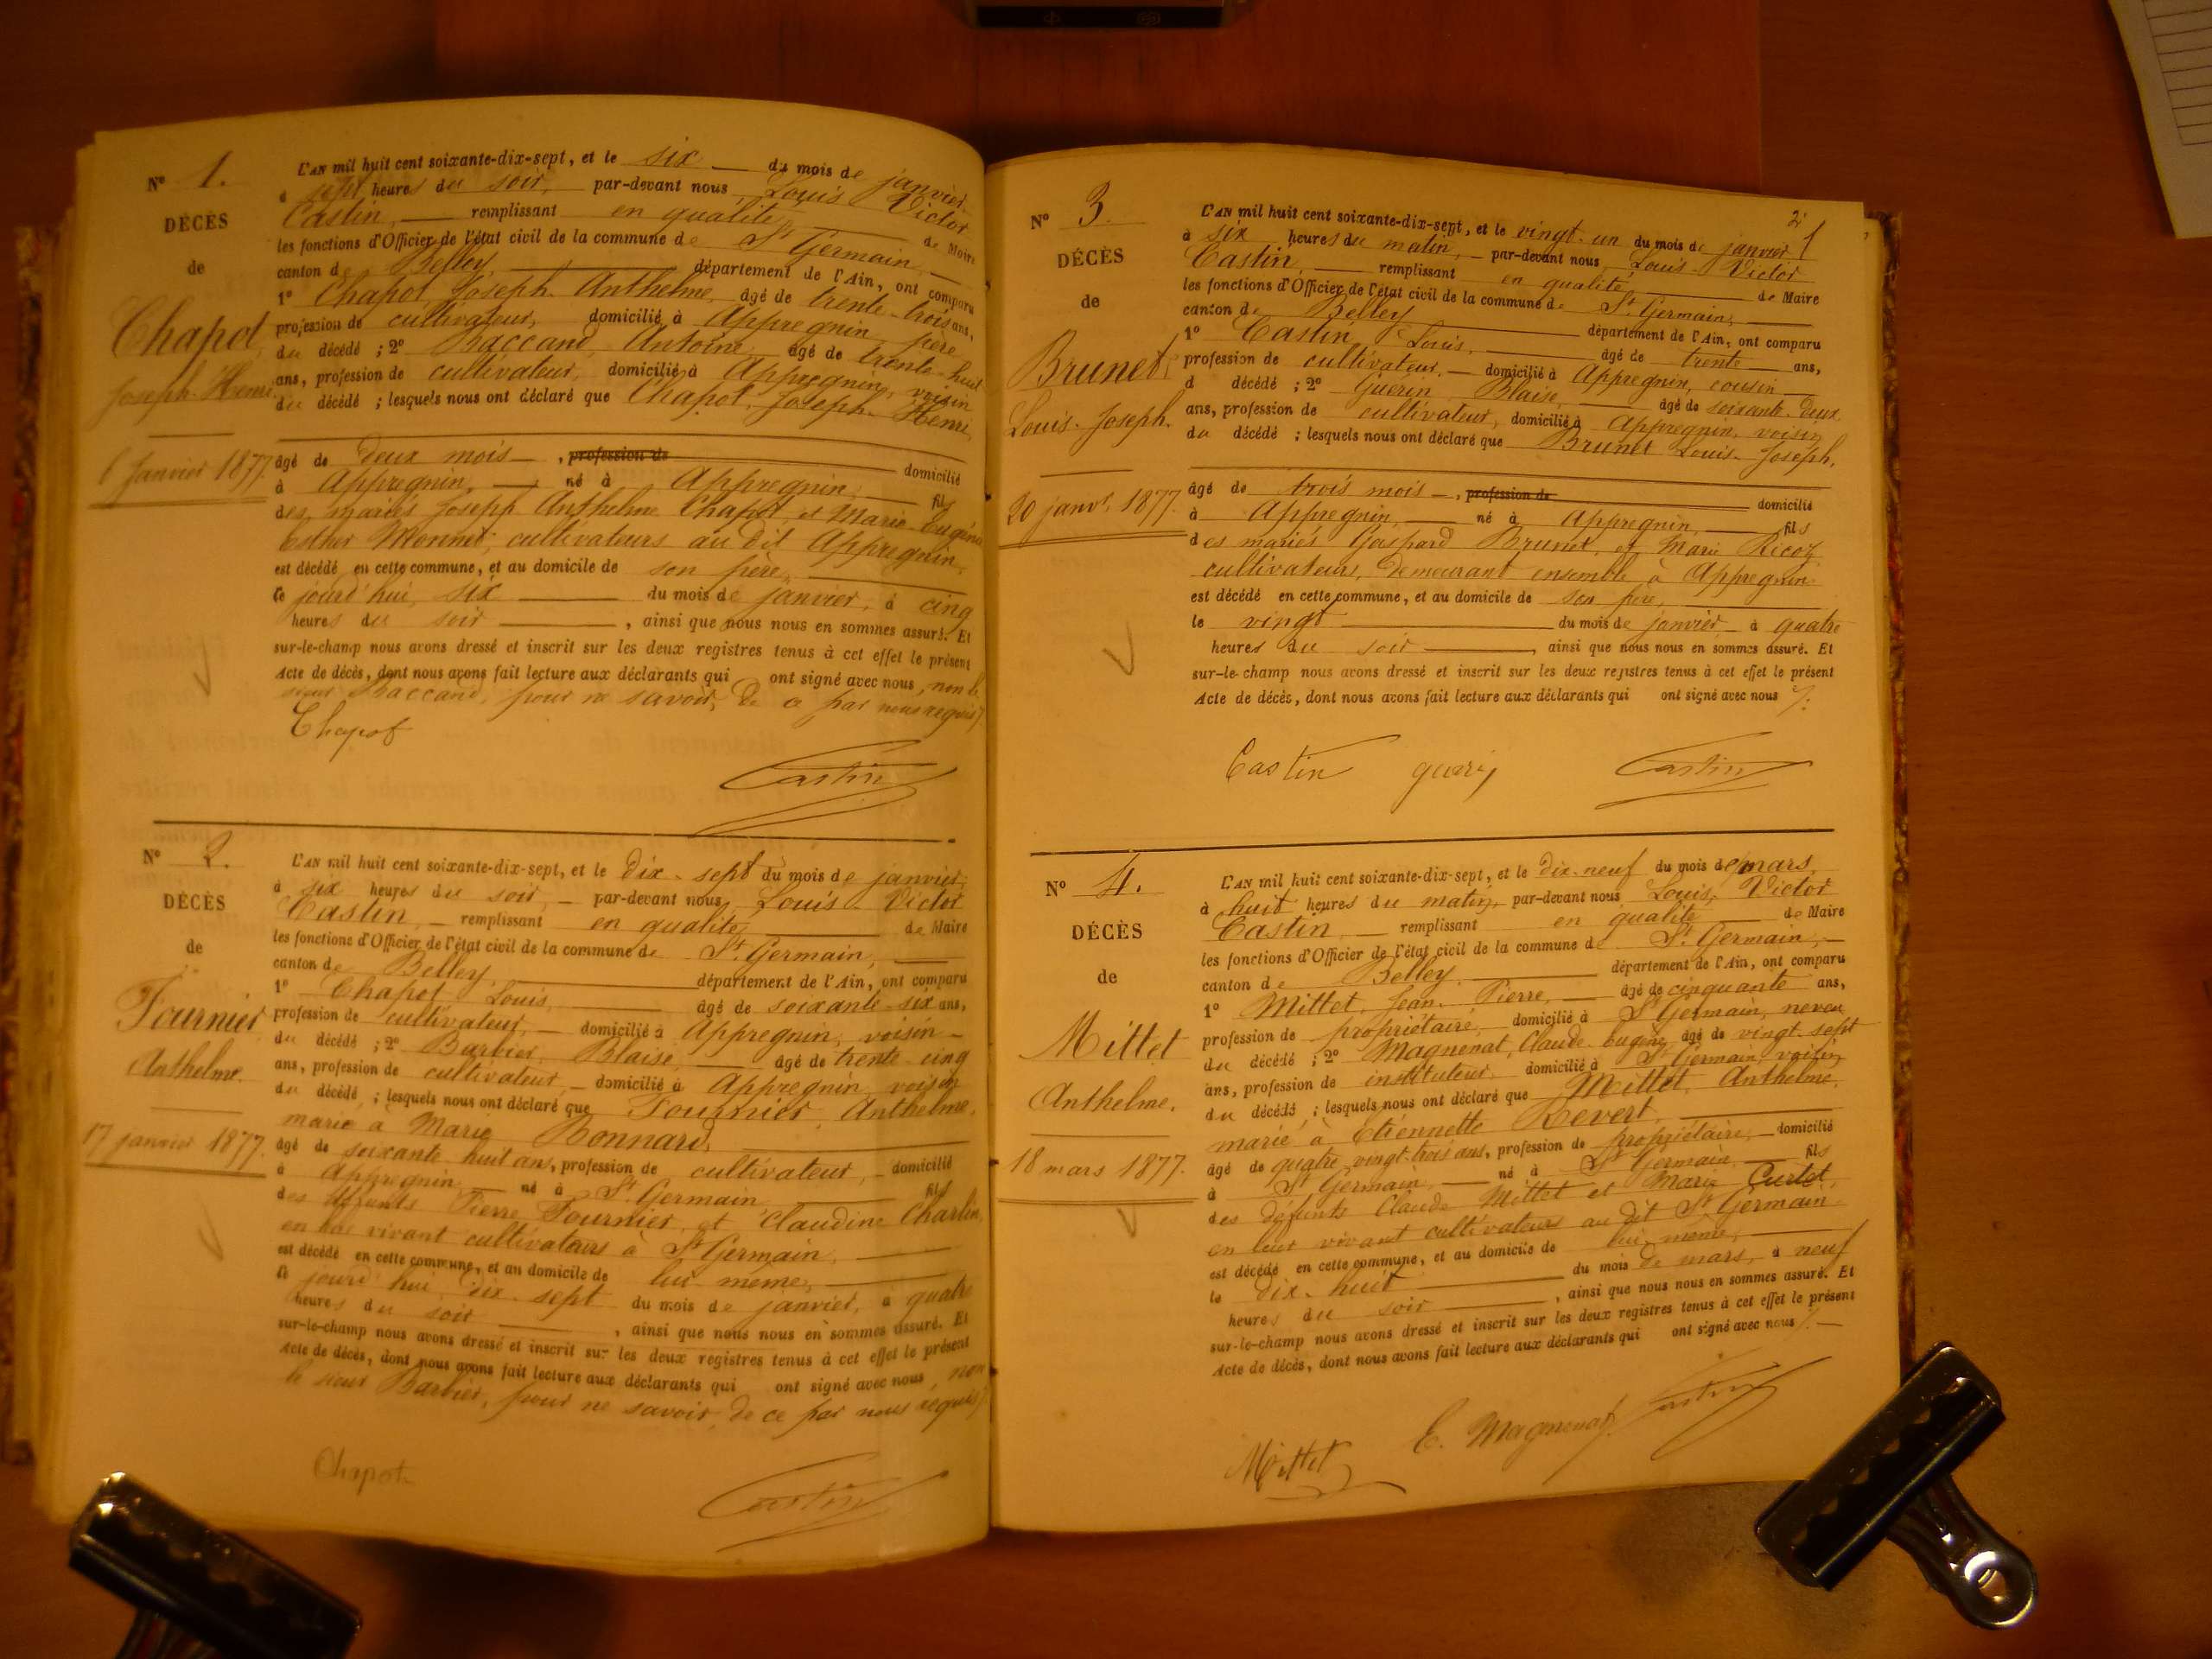 N° 1.
DÉCÈS
de
Chapot
Joseph-Henri.
6 Janvier 1877.
L'AN mil huit cent soixante-dix-sept, et le six du mois de janvier
à sept heures du soir, par-devant nous, Louis Victor
Castin, remplissant en qualité de Maire
les fonctions d'Officier de l'état civil de la commune de St Germain,
canton de Belley, département de l'Ain, ont comparu
1° Chapot, Joseph-Anthelme, âgé de trente-trois ans,
profession de cultivateur, domicilié à Appregnin, père
du décédé ; 2° Baccard, Antoine, âgé de trente-huit
ans, profession de cultivateur, domicilié à Appregnin, voisin
du décédé ; lesquels nous ont déclaré que Chapot, Joseph-Henri,
âgé de deux mois, profession de domicilié
à Appregnin, né à Appregnin, fils
des mariés Joseph Anthelme Chapot, et Marie-Eugénie
Esther Monnet, cultivateurs au dit Appregnin,
est décédé en cette commune, et au domicile de son père,
le jourd'hui, six du mois de janvier, à cinq
heures du soir, ainsi que nous nous en sommes assuré. Et
sur-le-champ nous avons dressé et inscrit sur les deux registres tenus à cet effet le présent
Acte de décès, dont nous avons fait lecture aux déclarants qui ont signé avec nous, non le
sieur Baccard, pour ne savoir, de ce par nous requis
Chapot
Castin
N° 2.
DÉCÈS
de
Fournier
Anthelme.
17 janvier 1877.
L'AN mil huit cent soixante-dix-sept, et le dix-sept du mois de janvier,
à six heures du soir, par-devant nous, Louis-Victor
Castin, remplissant en qualité, de Maire
les fonctions d'Officier de l'état civil de la commune de St Germain,
canton de Belley, département de l'Ain, ont comparu
1° Chapot Louis, âgé de soixante-six ans,
profession de cultivateur, domicilié à Appregnin, voisin
du décédé ; 2° Barbier, Blaise, âgé de trente cinq
ans, profession de cultivateur, domicilié à Appregnin, voisin
du décédé ; lesquels nous ont déclaré que Fournier, Anthelme,
marié à Marie Bonnard,
âgé de soixante huit ans, profession de cultivateur, domicilié
à Appregnin, né à St Germain, fils
des défunts Pierre Fournier, et Claudine Charlin,
en leur vivant cultivateurs à St Germain,
est décédé en cette commune, et au domicile de lui-même,
le jourd'hui, dix-sept du mois de janvier, à quatre
heures du soir, ainsi que nous nous en sommes assuré. Et
sur-le-champ nous avons dressé et inscrit sur les deux registres tenus à cet effet le présent
Acte de décès, dont nous avons fait lecture aux déclarants qui ont signé avec nous, non
le sieur Barbier, pour ne savoir, de ce par nous requis
Chapot
Castin
2
N° 3.
DÉCÈS
de
Brunet,
Louis-Joseph.
20 janvr. 1877.
L'AN mil huit cent soixante-dix-sept, et le vingt-un du mois de janvier
à six heures du matin, par-devant nous, Louis-Victor
Castin, remplissant en qualité, de Maire
les fonctions d'Officier de l'état civil de la commune de St Germain,
canton de Belley, département de l'Ain, ont comparu
1° Castin, Louis, âgé de trente ans,
profession de cultivateur, domicilié à Appregnin, cousin
d décédé ; 2° Guérin, Blaise, âgé de soixante-deux
ans, profession de cultivateur, domicilié à Appregnin, voisin
du décédé ; lesquels nous ont déclaré que Brunet Louis-Joseph,
âgé de trois mois, profession de domicilié
à Appregnin, né à Appregnin, fils
des mariés Gaspard Brunet, et Marie Ricoz
cultivateurs, demeurant ensemble à Appregnin
est décédé en cette commune, et au domicile de son père,
le vingt du mois de janvier à quatre
heures du soir, ainsi que nous nous en sommes assuré. Et
sur-le-champ nous avons dressé et inscrit sur les deux registres tenus à cet effet le présent
Acte de décès, dont nous avons fait lecture aux déclarants qui ont signé avec nous
Castin
Castin
N° 4.
DÉCÈS
de
Mittet
Anthelme.
18 mars 1877.
L'AN mil huit cent soixante-dix-sept, et le dix-neuf du mois de mars,
à huit heures du matin, par-devant nous Louis, Victor
Castin, remplissant en qualité de Maire
les fonctions d'Officier de l'état civil de la commune de St Germain,
canton de Belley, département de l'Ain, ont comparu
1° Mittet, Jean-Pierre, âgé de cinquante ans,
profession de propriétaire, domicilié à St Germain, neveu
du décédé ; 2° Magnenat, Claude-Eugène, âgé de vingt-sept
ans, profession de instituteur, domicilié à St Germain, voisin
du décédé ; lesquels nous ont déclaré que Mittet, Anthelme,
marié à Etiennette Revert,
âgé de quatre vingt-trois ans, profession de propriétaire, domicilié
à St Germain, né à St Germain, fils
des défunts Claude Mittet et Marie Curtet,
en leur vivant cultivateurs au dit St Germain
est décédé en cette commune, et au domicile de lui-même,
le dix-huit du mois de mars, à neuf
heures du soir, ainsi que nous nous en sommes assuré. Et
sur-le-champ nous avons dressé et inscrit sur les deux registres tenus à cet effet le présent
Acte de décès, dont nous avons fait lecture aux déclarants qui ont signé avec nous
Mittet
E. Magnenat
Castin